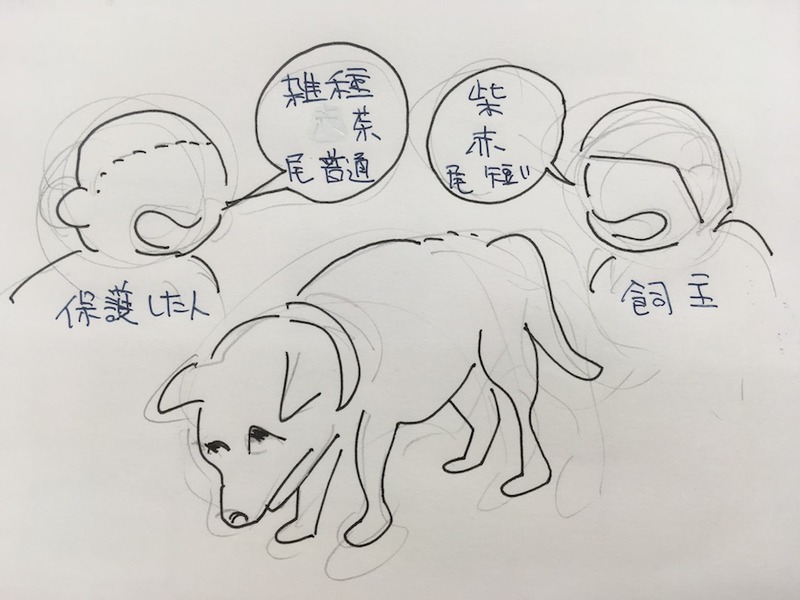 雑種
茶
尾普通
柴
赤
尾短い
保護した人
飼主